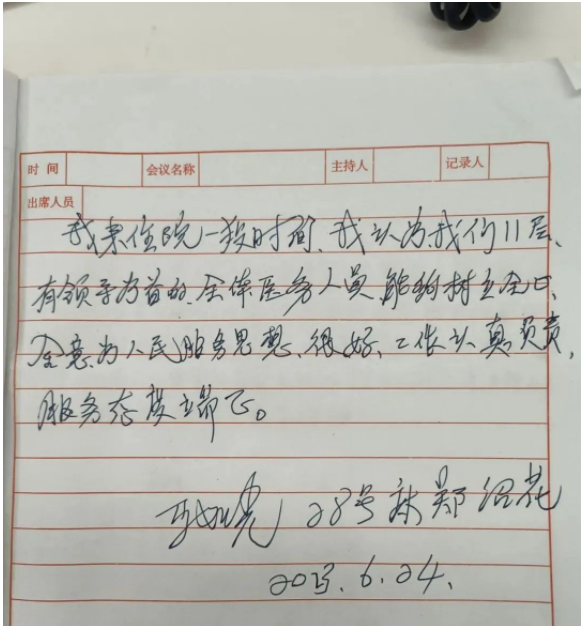 时间 会议名称 主持人 记录人
出席人员
我来住院一段时间、我认为我们11层、
有领导为首的、全体医务人员、能够树立全心、
全意为人民服务思想、很好、工作认真负责,
服务态度端正。
28号床 郑 花
2023.6.24.